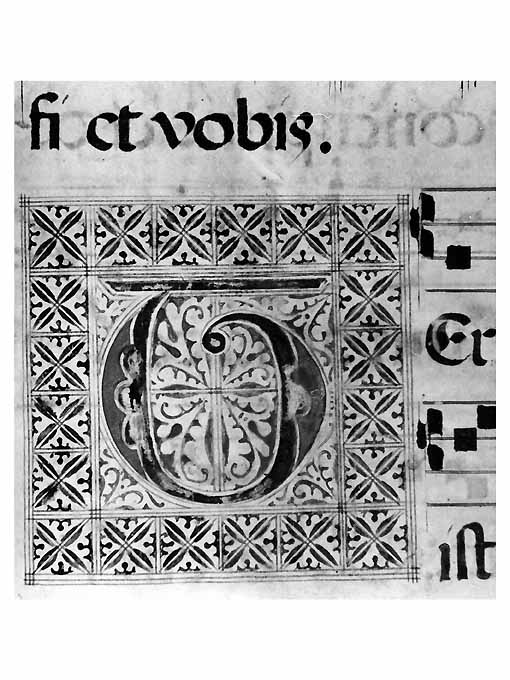 si et vobis.
T Er
ist